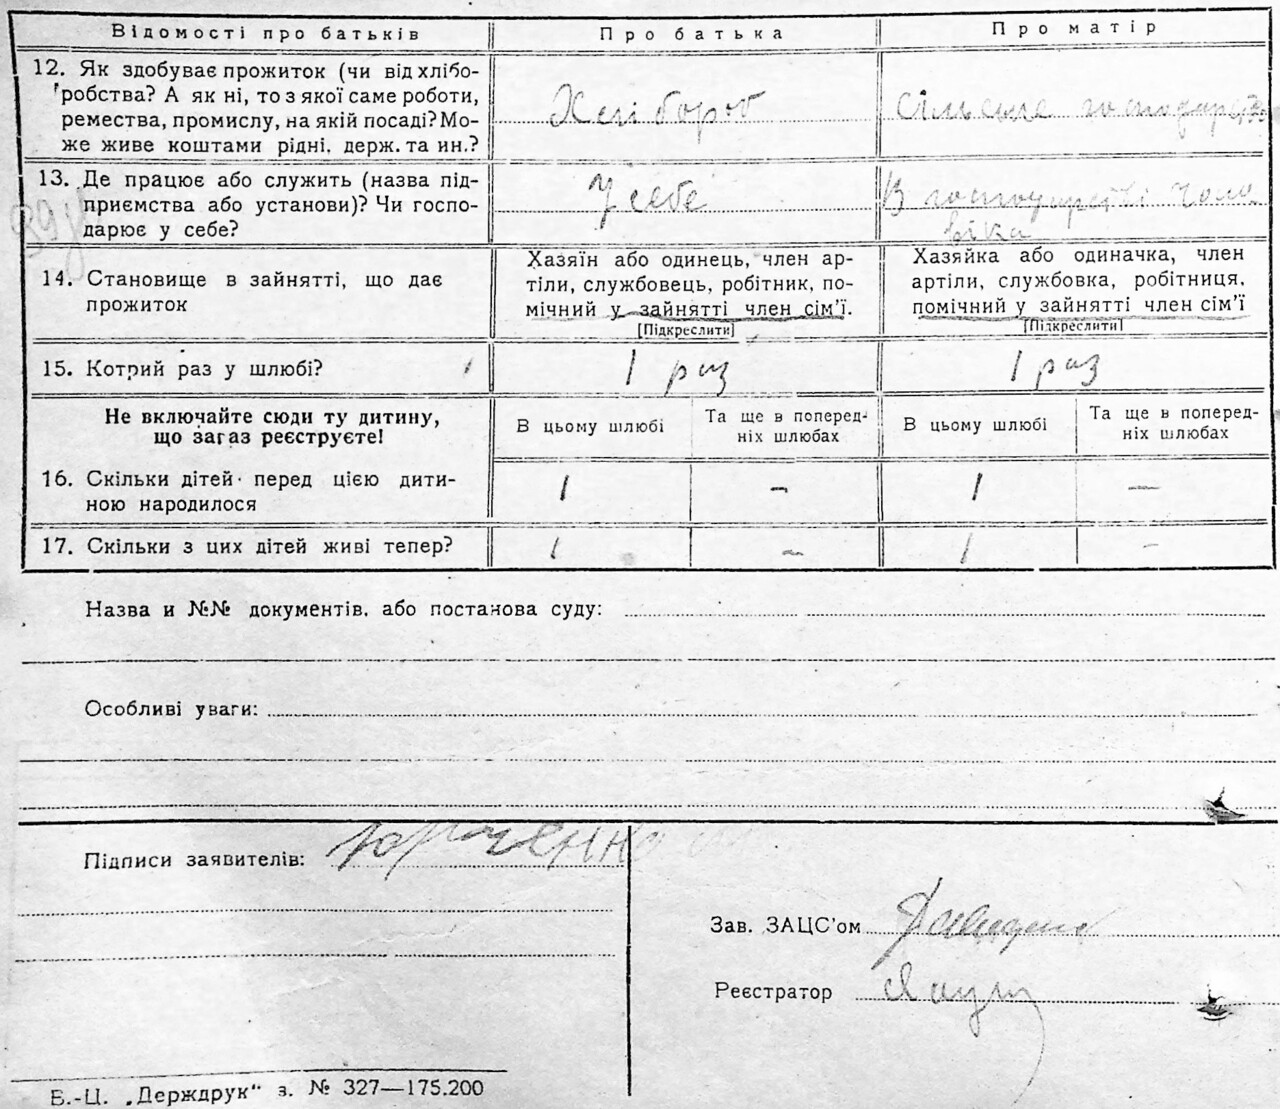 Відомості про батьків
Про батька
Про матір
12. Як здобуває прожиток (чи від хлібо-
робства? А як ні, то з якої саме роботи,
ремества, промислу, на якій посаді? Мо-
же живе коштами рідні, держ. та ин.?
Хлібороб
сільське господарство
13. Де працює або служить (назва під-
приємства або установи)? Чи госпо-
дарює у себе?
У себе
В господарстві чоло
віка
14. Становище в зайнятті, що дає
прожиток
Хазяїн або одинець, член ар-
тіли, службовець, робітник, по-
мічний у зайнятті член сім'ї.
[Підкреслити]
Хазяйка або одиначка, член
артіли, службовка, робітниця,
помічний у зайнятті член сім'ї
[Підкреслити]
15. Котрий раз у шлюбі?
1 раз
1 раз
Не включайте сюди ту дитину,
що загаз реєструєте!
В цьому шлюбі
Та ще в поперед-
ніх шлюбах
В цьому шлюбі
Та ще в поперед-
ніх шлюбах
16. Скільки дітей перед цією дити-
ною народилося
1
-
1
—
17. Скільки з цих дітей живі тепер?
1
-
1
-
Назва и №№ документів, або постанова суду:
Особливі уваги:
Підписи заявителів:
Зав. ЗАЦС'ом
Реєстратор
Б.-Ц. „Держдрук" з. № 327—175.200